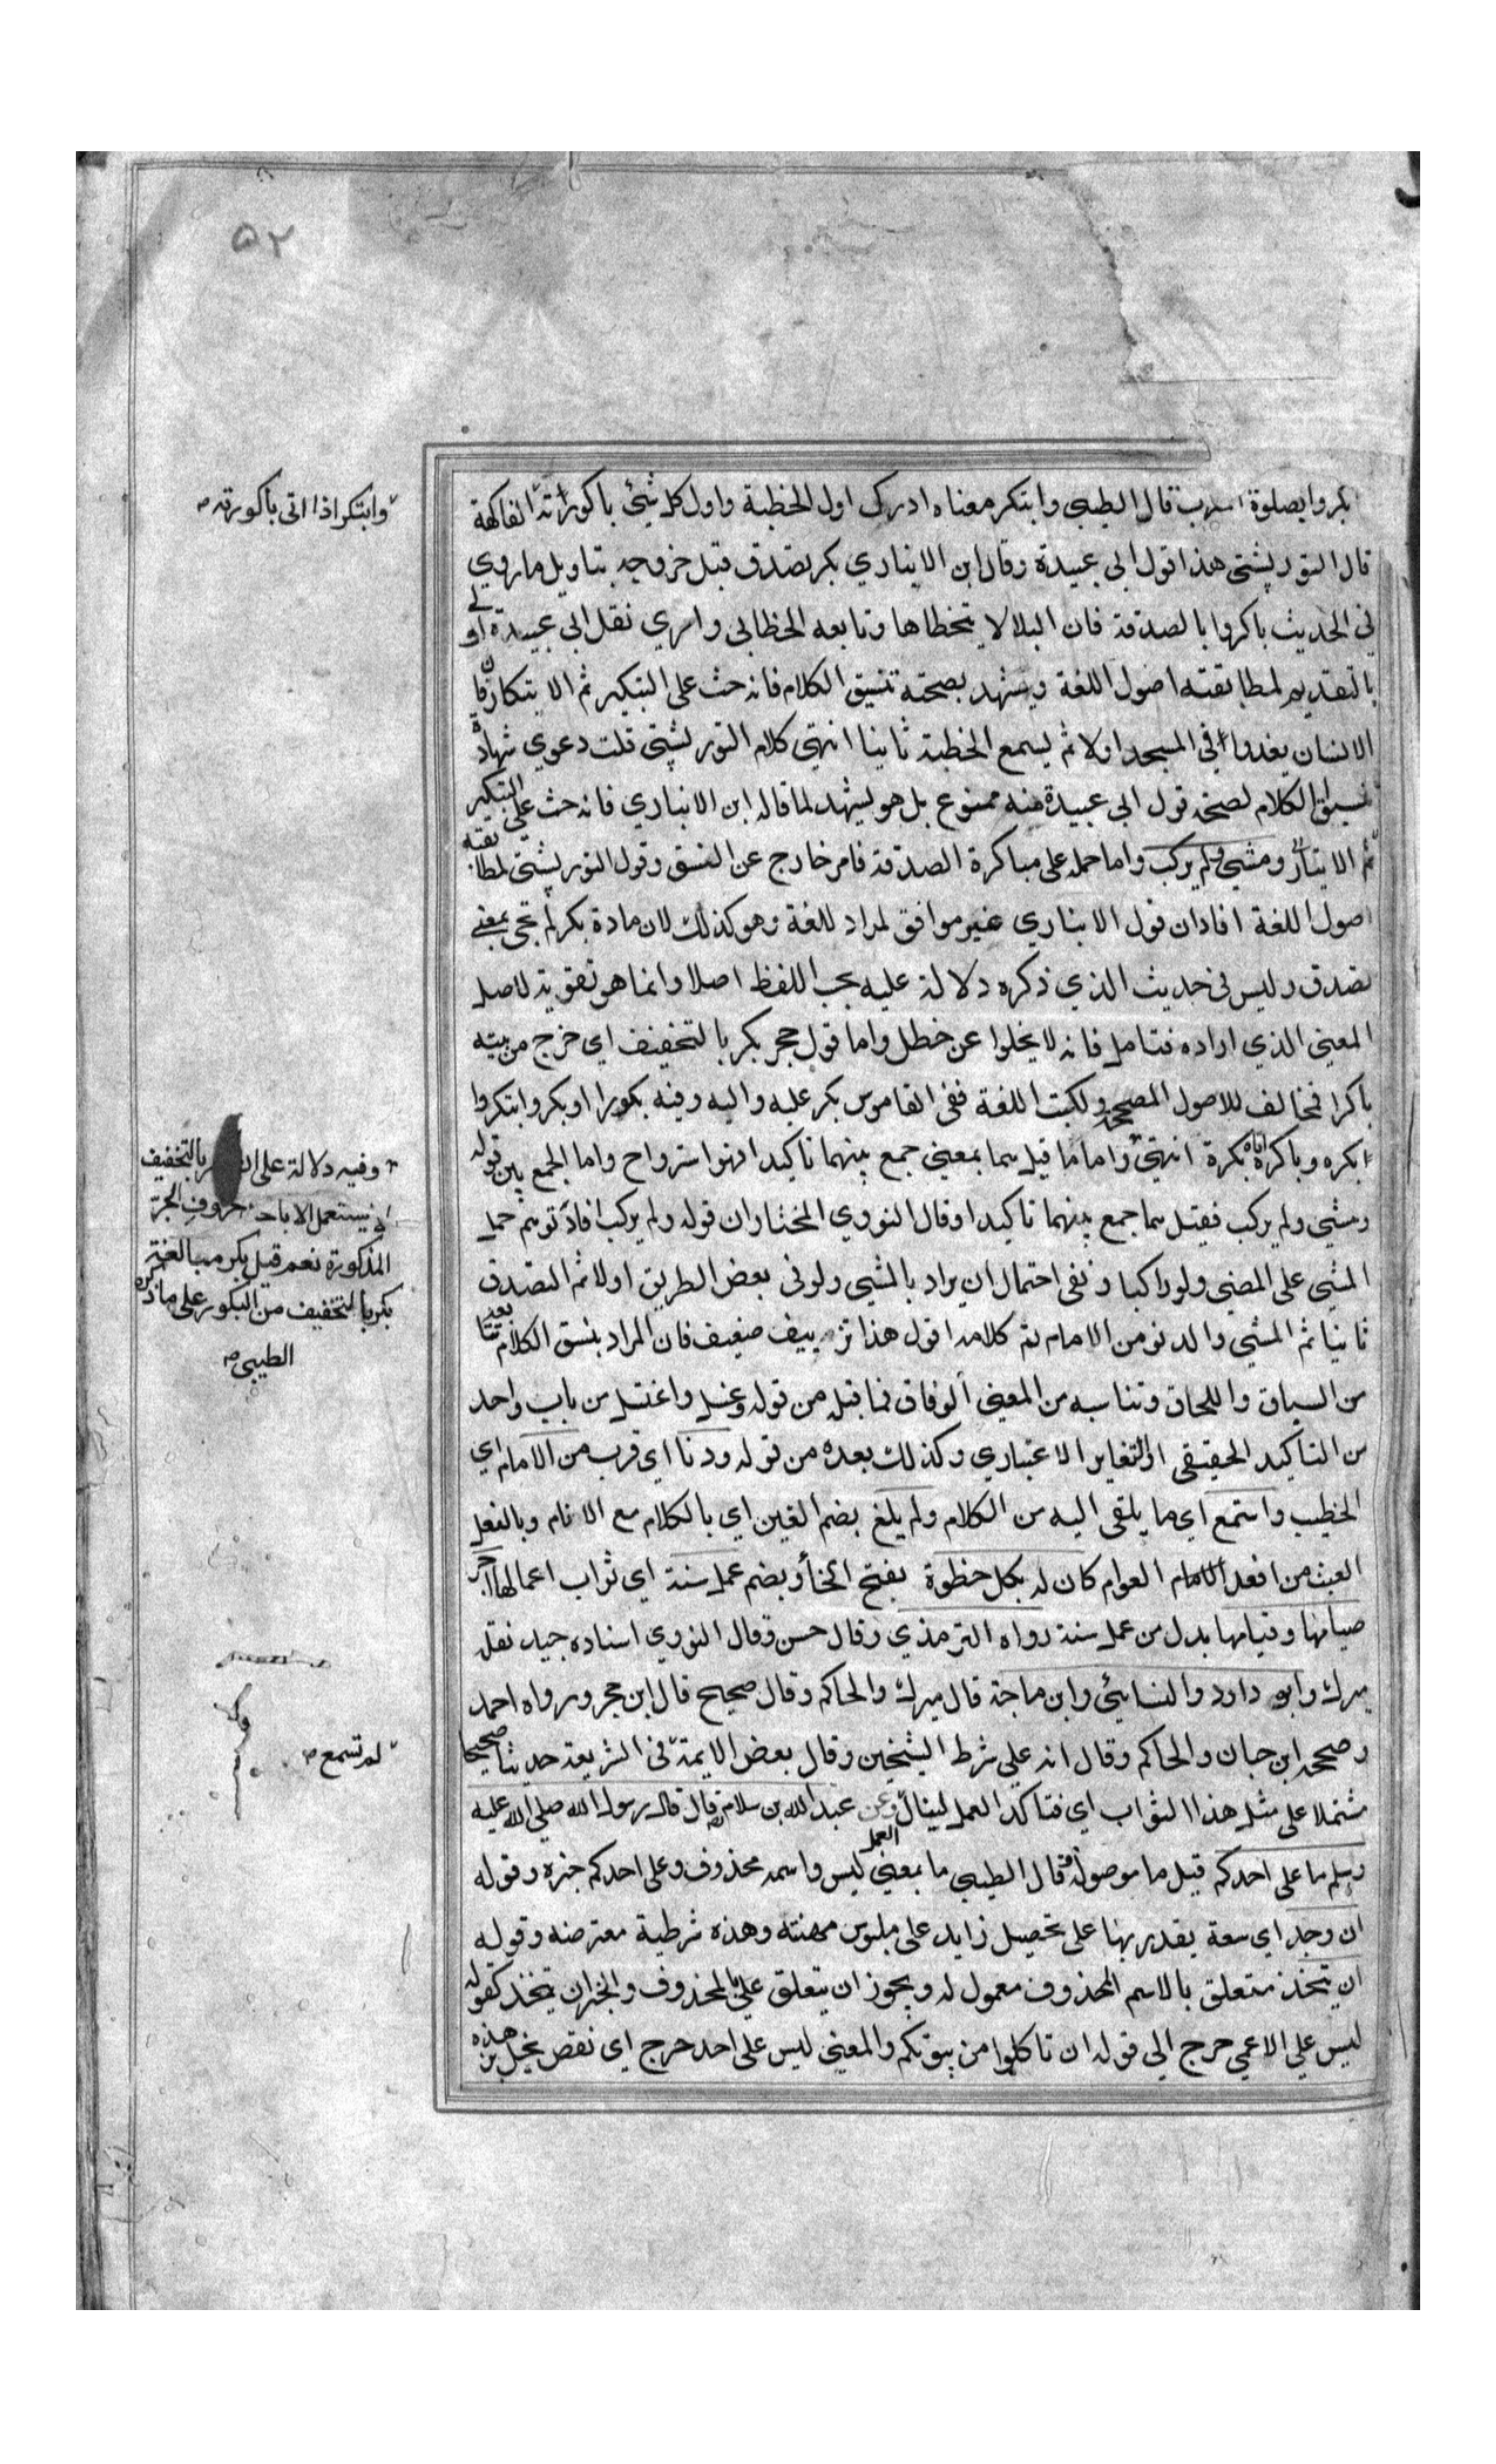 ٥٢
بكروا بصلوة المغرب قال الطيبى وابتكر معناه ادرك اول الخطبة واول كل شيئ باكورته الفاكهة
وابتكر اذا اتى باكورته صح
قال التوربشتى هذا قول ابى عبيدة وقال ابن الانباري بكر تصدق قبل خروجه بتاويل ما روي
فى الحديث باكروا بالصدقة فان البلا لا يتخطاها وتابعه الخطابى وارى نقل ابى عبيدة اولى
بالتقديم لمطابقته اصول اللغة ويشهد بصحته تنسيق الكلام فانه حث على التبكير ثم الابتكار فان
الانسان يغدوا فى المسجد اولا ثم يسمع الخطبة ثانيا انتهى كلام التوربشتى قلت دعوي شهادة
تنسيق الكلام لصحة قول ابى عبيدة منه ممنوع بل هو يشهد لما قاله ابن الانباري فانه حث على التبكير
ثم الابتكار ومشى ولم يركب واما حمله على مباكرة الصدقة فامر خارج عن النسق وقول التوربشتى لمطابقته
اصول اللغة افاد ان قول الانباري غير موافق لمراد اللغة وهو كذلك لان مادة بكر لم تجى بمعنى
تصدق وليس فى حديث الذي ذكره دلالة عليه بحسب اللفظ اصلا وانما هو تقوية لاصل
المعنى الذي اراده فتامل فانه لا يخلوا عن خطل واما قول حجر بكر بالتخفيف اي خرج من بيته
باكرا فمخالف للاصول المصححة ولكتب اللغة ففى القاموس بكر عليه واليه وفيه بكورا او بكر وابتكروا
ابكره وباكره اتاه بكرة انتهى واما ما قيل هما بمعنى جمع بينهما تاكيدا فهو استرواح واما الجمع بين قوله
وفيه دلالة على ان بكر بالتخفيف
لا يستعمل الا باحد حروف الجر
المذكورة نعم قيل بكر مبالغة
بكر بالتخفيف من البكور على ما ذكره
الطيبى صح
ومشى ولم يركب فقيل هما جمع بينهما تاكيدا وقال النووي المختار ان قوله ولم يركب افاد توهم حمل
المشى على المضى ولو راكبا ونفى احتمال ان يراد بالمشى ولو فى بعض الطريق اولا ثم التصدق
ثانيا ثم المشى والدنو من الامام تم كلامه اقول هذا تزييف ضعيف فان المراد بنسق الكلام
من السباق واللحاق وتناسبه من المعنى الوفاق فما قبله من قوله وغسل واغتسل من باب واحد
من التاكيد الحقيقى او التغاير الاعتباري وكذلك بعده من قوله ودنا اي قرب من الامام اي
الخطيب واستمع اي ما يلقى اليه من الكلام ولم يلغ بضم الغين اي بالكلام مع الانام وبالفعل
العبث من افعال العوام كان له بكل خطوة بفتح الخاء وبضم عمل سنة اي ثواب اعمالها اجر
صيامها وقيامها بدل من عمل سنة رواه الترمذي وقال حسن وقال النووي اسناده جيد نقله
ميرك وابو داود والنسايئ وابن ماجة قال ميرك والحاكم وقال صحيح قال ابن حجر ورواه احمد
وصححه ابن حبان والحاكم وقال انه على شرط الشيخين وقال بعض الايمة فى الشريعة حديثا صحيحا
لم تسمع صح
مشتملا على مثل هذا الثواب اي فتاكد العمل لينال وعن عبد الله بن سلام قال قال رسول الله صلى الله عليه
وسلم ما على احدكم قيل ما موصولة قال الطيبى ما بمعنى ليس واسمه محذوف وعلى احدكم خبره وقوله
ان وجد اي سعة يقدر بها على تحصيل زايد على ملبوس مهنته وهذه شرطية معترضة وقوله
ان يتخذ متعلق بالاسم المحذوف معمول له ويجوز ان يتعلق على بالمحذوف والخبر ان يتخذ كقوله
ليس على الاعمى حرج الى قوله ان تاكلوا من بيوتكم والمعنى ليس على احد حرج اي نقص